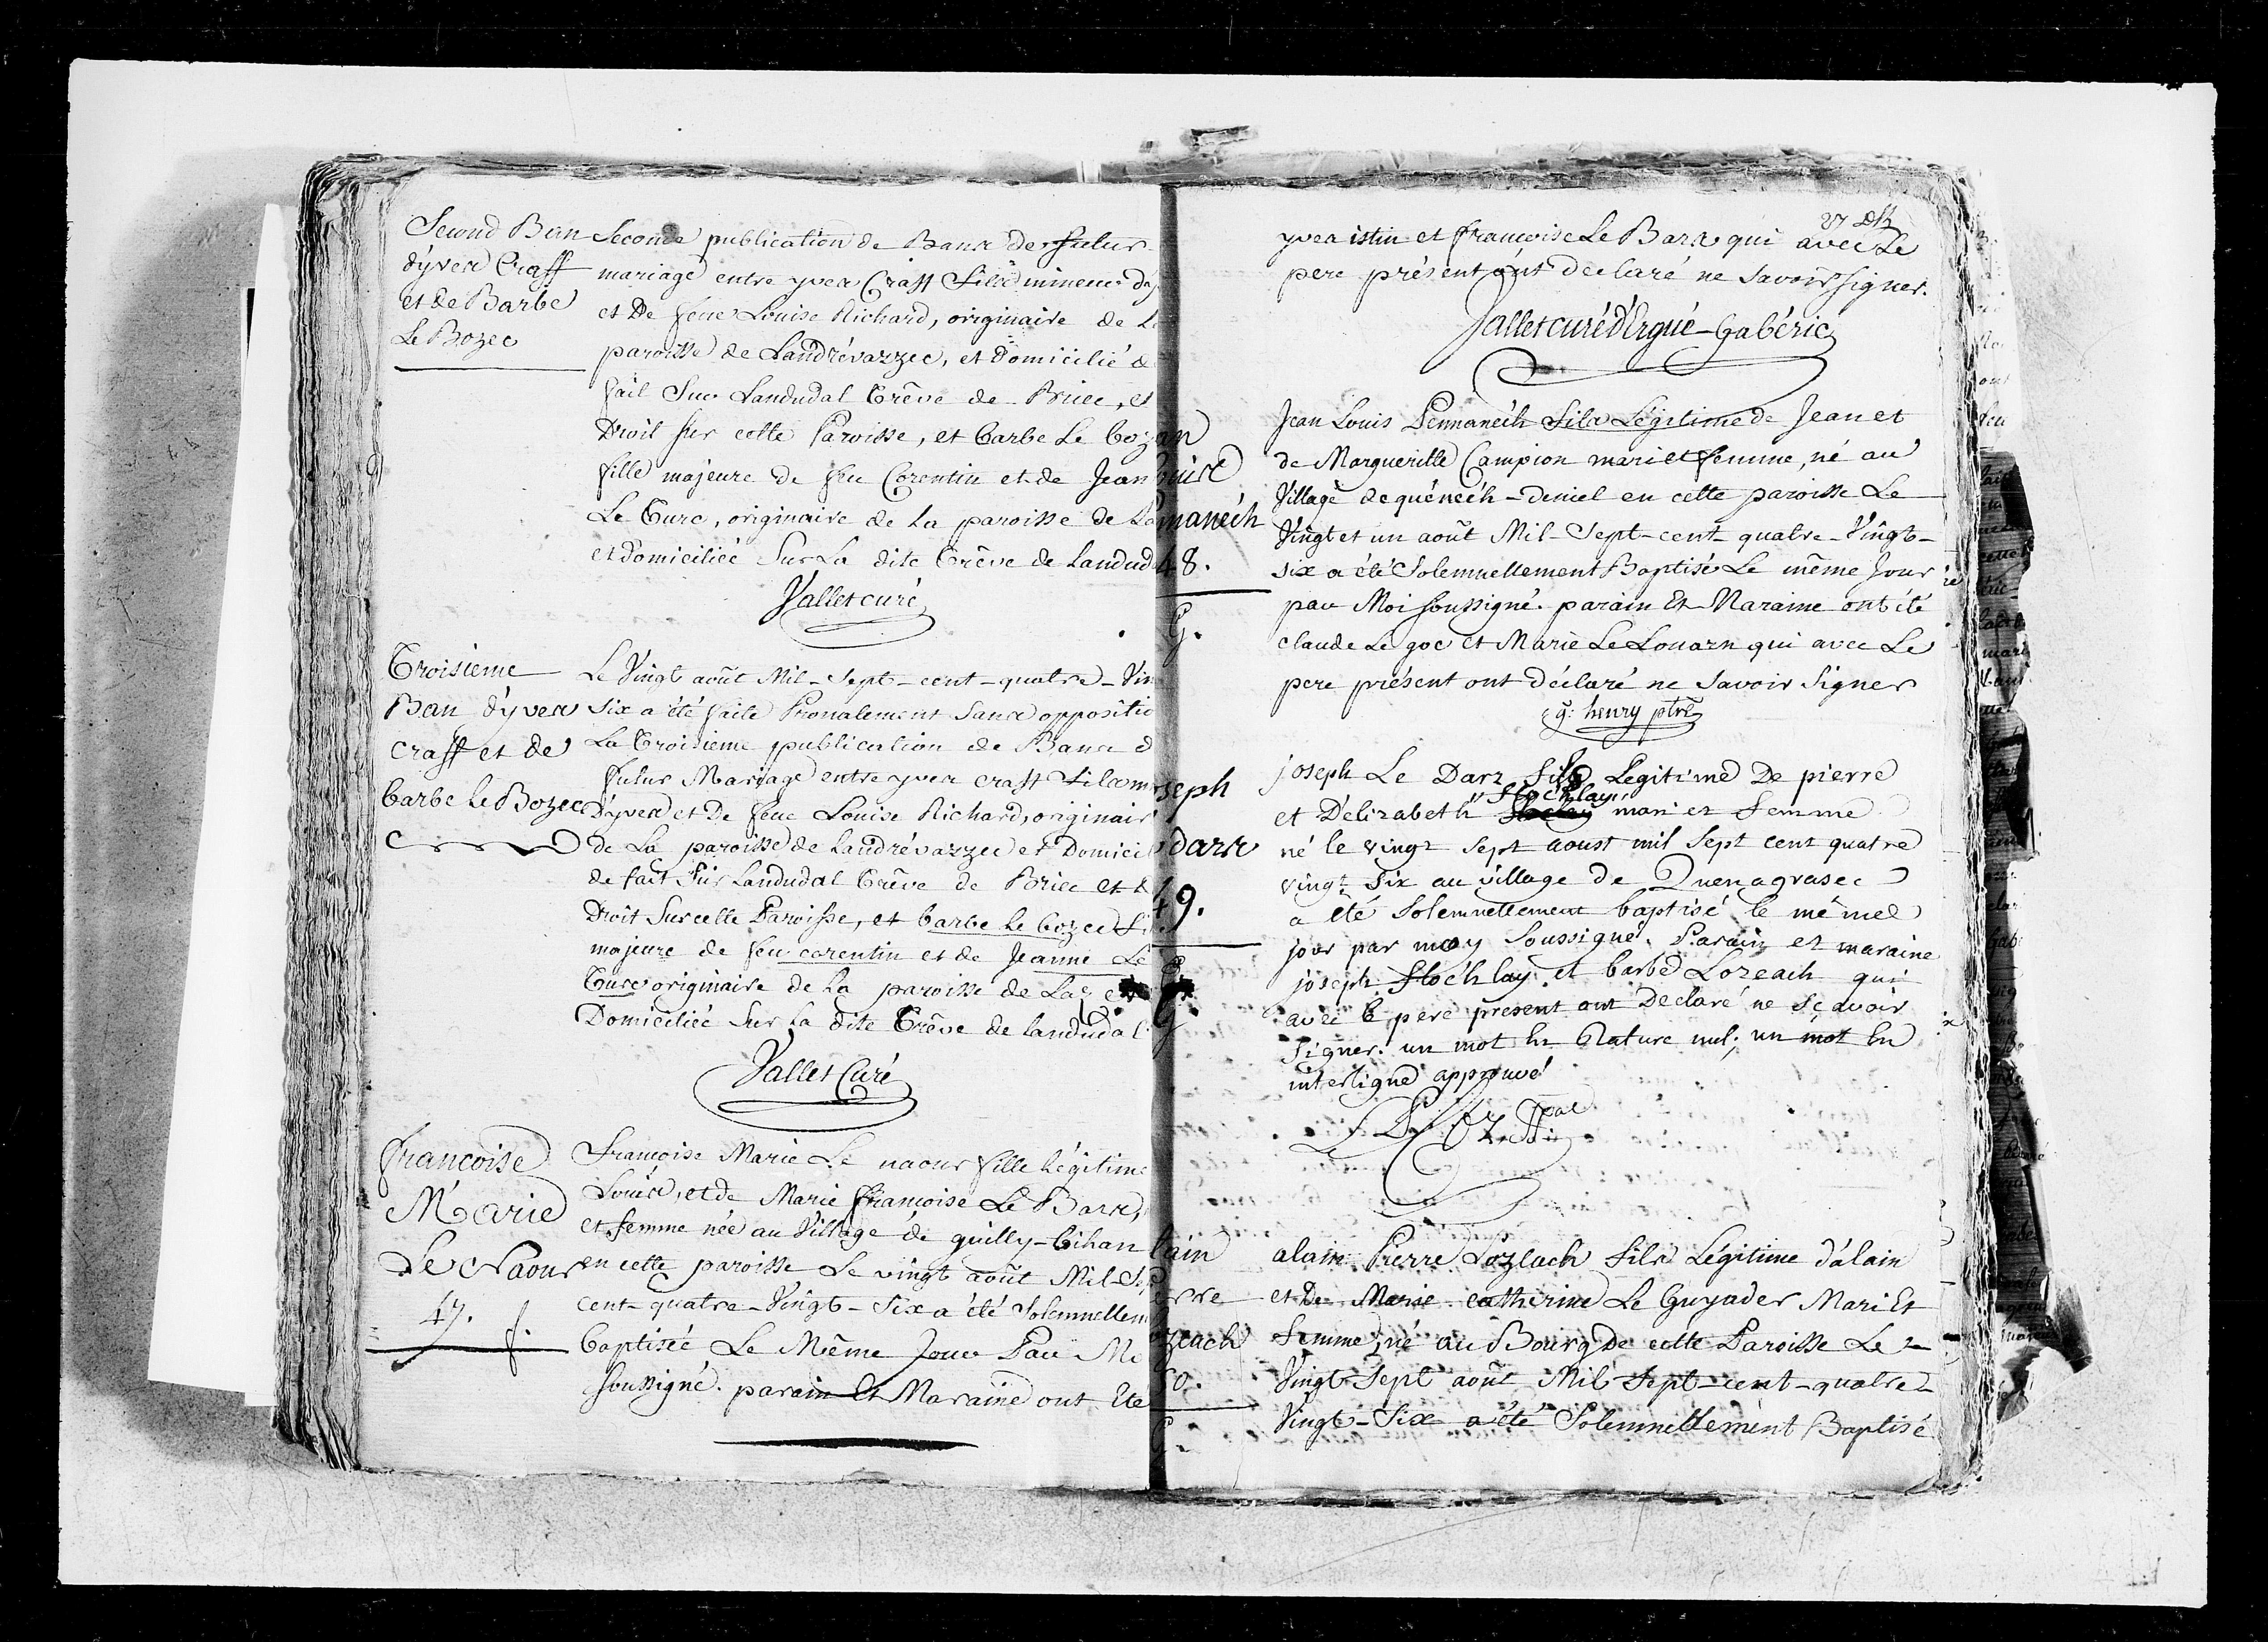 Second Ban
d'yves Craff
et de Barbe
Le Bozec
Seconde publication de Bans de futur
mariage entre yves Craff fils mineur d'y
et De feue Louise Richard, originaire de L
paroisse de Landrévarzec, et domicilié d
fait Sur Landudal Trêve de Briec, et
Droit sur cette Paroisse, et barbe Le boz
fille majeure de feu Corentin et de Jean
Le Turc, originaire de La paroisse de La
et domiciliée Sur La dite Trêve de Landud
Vallet curé
Troisieme
Ban d'yves
craff et de
barbe Le Bozec
Le Vingt août Mil-Sept-cent-quatre-Vin
Six a été faite Pronalement Sans oppositio
La Troisieme publication de Bans d
futur Mariage entre yves craff fils m
d'yves et De feue Louise Richard, originair
de La paroisse de Landrévarzec et Domicil
de fait Sur Landudal Trêve de Briec et d
Droit Sur cette Paroisse, et barbe le bozec fi
majeure de feu corentin et de Jeanne Le
Turc originaire de La paroisse de Laz et
Domiciliée Sur La dite Trêve de landudal
Vallet Curé
françoise
Marie
Le Naour
47.
f.
Françoise Marie Le naour fille Légitime
Louis, et de Marie françoise Le Barz,
et femme née au Village de quilly-bihan
en cette paroisse Le vingt août Mil-Se
cent-quatre-Vingt-Six a été Solemnellem
baptisée Le Même Jour Par Mo
soussigné. parain Et Maraine ont Eté
27
yves istin et françoise Le Barz qui avec Le
pere présent ont declaré ne Savoir signer.
Vallet curé d'Ergué-Gabéric
an
ouis
manéch
48.
G.
Jean Louis Pennanéch fils Légitime de Jean et
de Marguerille Campion mari et femme, né au
Village de quénéch-deniel en cette paroisse Le
Vingt et un août Mil-Sept-cent-quatre-Vingt-
six a été Solemnellement Baptisé Le même Jour
par Moi soussigné. parain Et Maraine ont été
claude Le goc et Marie Le Louarn qui avec Le
pere présent ont déclaré ne Savoir Signer
g: henry ptre
seph
darz
49.
G.
joseph Le Darz fils Legitime De pierre
et D'élizabeth Floc'hlay mari et femme
né le vingt sept aoust mil sept cent quatre
vingt Six au village de Quenagrasec
a été Solemnellement baptisé le même
jour par moy Soussigné. Parain et maraine
joseph floc'hlay et barbe Lozeach qui
avec le père present ont Declaré ne Sçavoir
signer. un mot En Rature nul; un mot En
interligne approuvé
lain
erre
ozeach
50.
G.
alain Pierre Lozeach fils Légitime d'alain
et De Marie catherine Le Guyader Mari Et
femme, né au Bourg De cette Paroisse Le
Vingt-Sept août Mil-Sept-cent-quatre-
Vingt-Six a été Solemnellement Baptisé